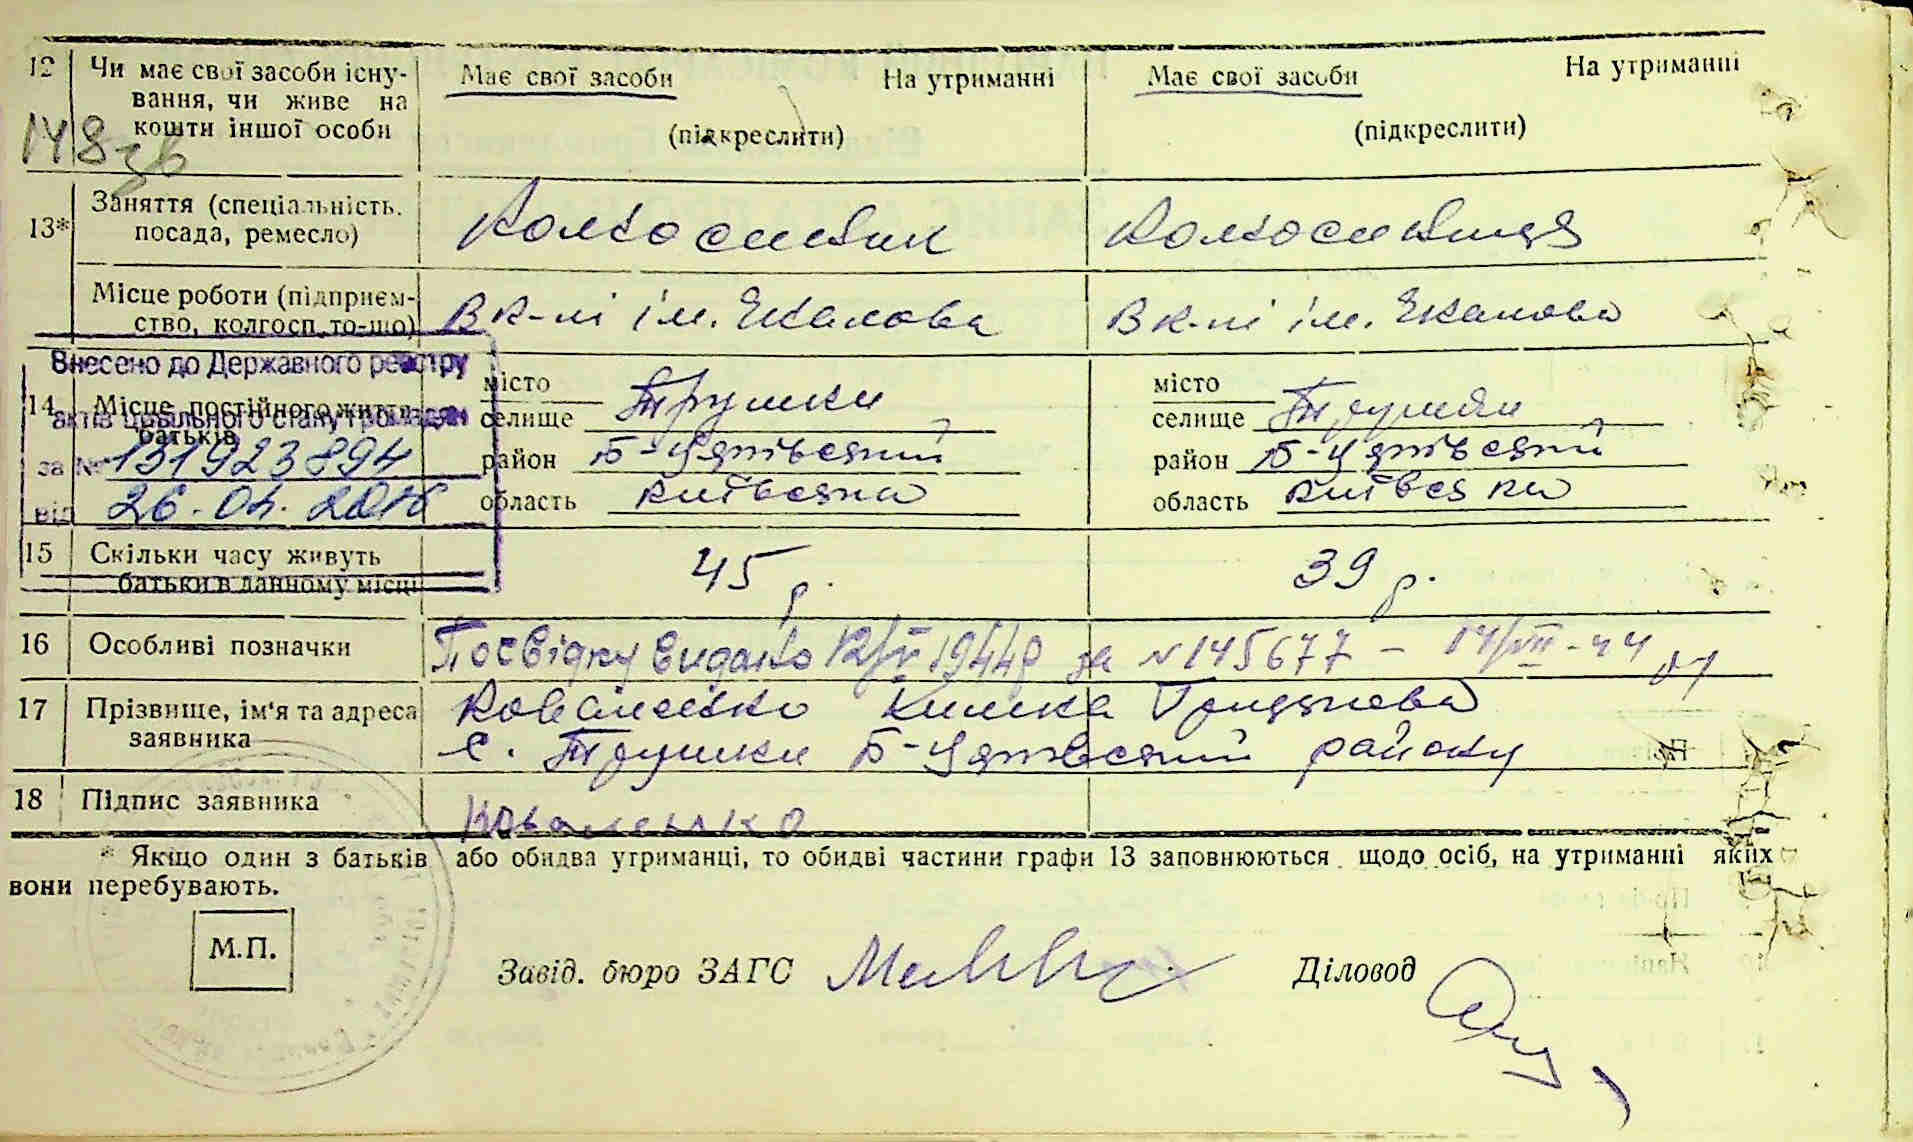 12 Чи має свої засоби існу- Має свої засоби На утриманні Має свої засоби На утриманні
вання, чи живе на
148зв кошти іншої особи (підкреслити) (підкреслити)
13* Заняття (спеціальність. Колгоспник Колгоспниця
посада, ремесло)
Місце роботи (підприєм- В к-пі ім. Чкалова В к-пі ім. Чкалова
ство, колгосп, то-що)
Внесено до Державного реєстру
місто місто
14 Місце постійного життя селище Трушки селище Трушки
актів цивільного стану громадян
батьків
за № 131923894 район Б-Церківський район Б-Церківський
від 26.04.2016 область Київська область Київська
15 Скільки часу живуть 45 р. 39 р.
батьки в данному місці
16 Особливі позначки Посвідку видано 12/V 1944р за №145677 - 14/VII-44 р
17 Прізвище, ім'я та адреса Коваленко
заявника с. Трушки Б-Церківський району
18 Підпис заявника Коваленко
* Якщо один з батьків або обидва утриманці, то обидві частини графи 13 заповнюються щодо осіб, на утриманні яких
вони перебувають.
М.П.
Завід. бюро ЗАГС Діловод